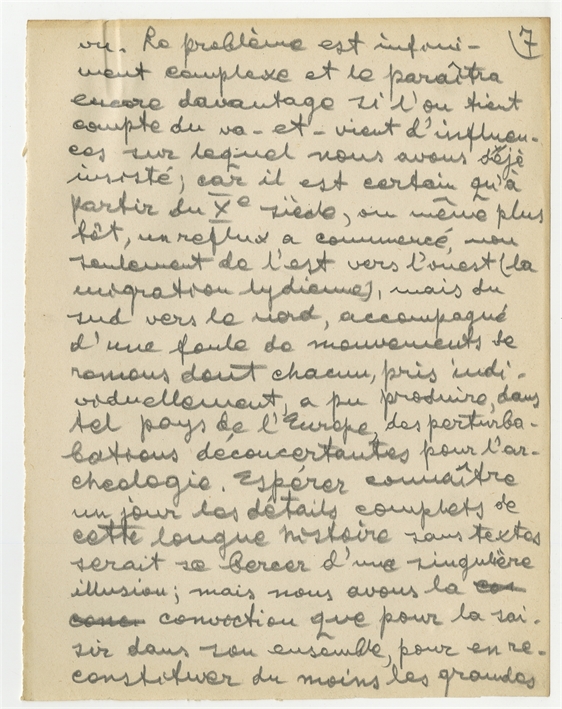 7
vu. Le problème est infini-
ment complexe et le paraîtra
encore davantage si l'on tient
compte du va-et-vient d'influen-
ces sur lequel nous avons déjà
insisté; car il est certain qu'à
partir du Xe siècle, ou même plus
tôt, un reflux a commencé, non
seulement de l'est vers l'ouest (la
migration lydienne), mais du
sud vers le nord, accompagné
d'une foule de mouvements se
remous dont chacun, pris indi-
viduellement, a pu produire, dans
tel pays de l'Europe, des perturba-
bations déconcertantes pour l'ar-
cheologie. Espérer connaître
un jour les détails complets de
cette longue histoire sans textes
serait se bercer d'une singulière
illusion; mais nous avons la
conviction que pour la sai-
sir dans son ensemble, pour en re-
constituer du moins les grandes